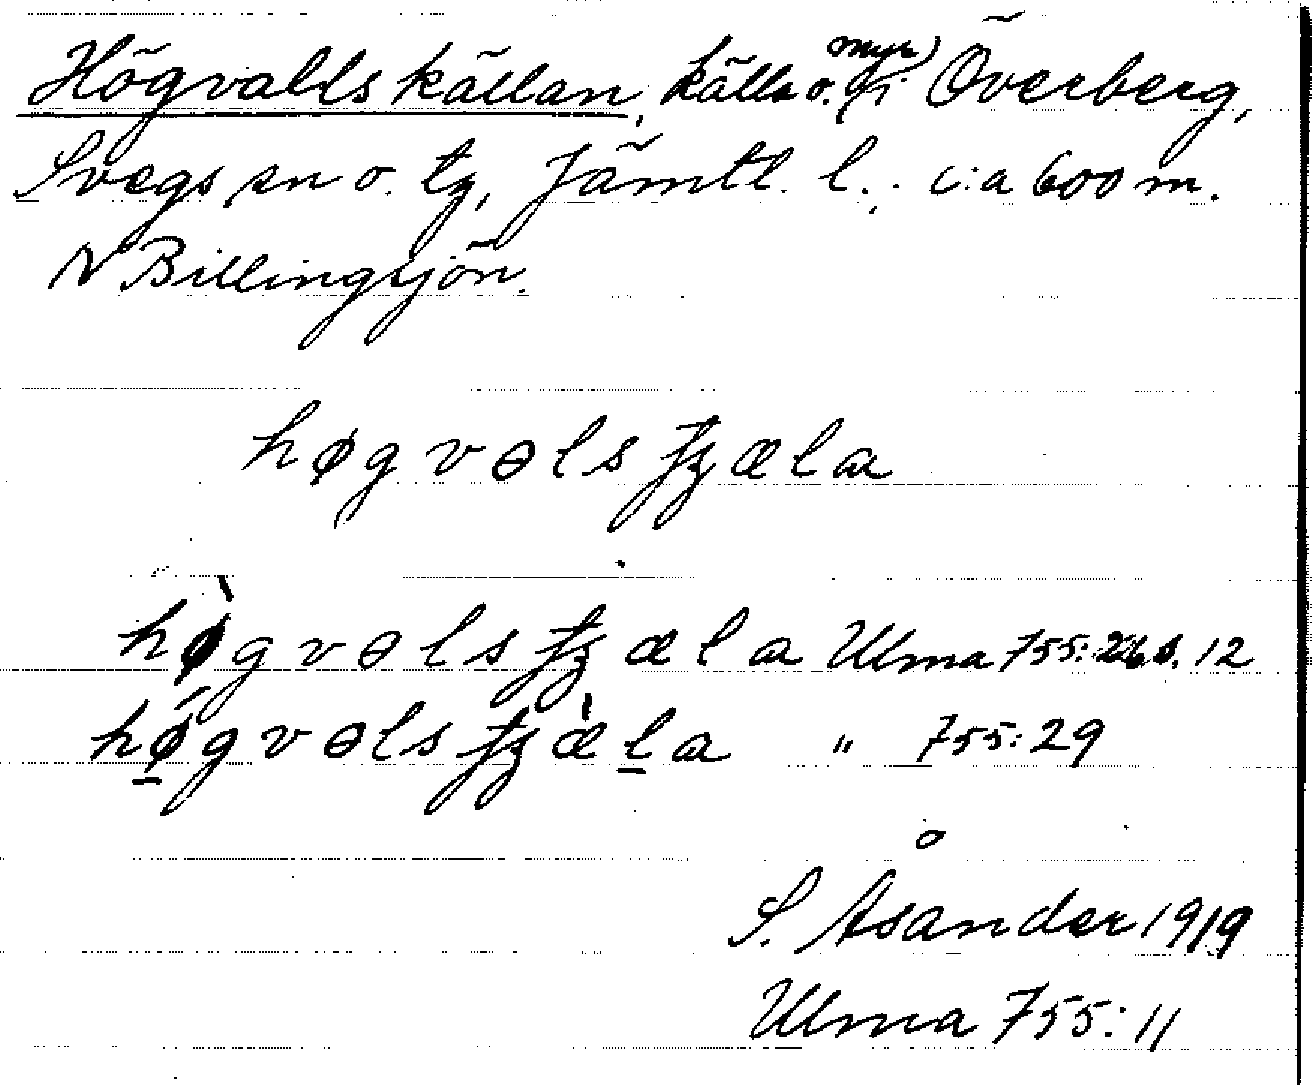 Högvallskällan, källa o. myr i Överberg,
Svegs sn o. tg, Jämtl. l., c:a 600 m.
N Billingsjön.
høgvəlsꞙæla
hø̀gvəls æla Ulma 755: 26 s. 12
hǿgvəls æ̀la " 755: 29
S. Åsander 1919
Ulma 755: 11